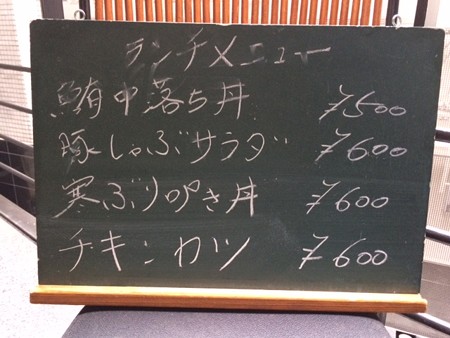 ランチメニュー
鮪中落ち丼 ¥500
豚しゃぶサラダ ¥600
寒ぶりのづき丼 ¥600
チキンカツ ¥600